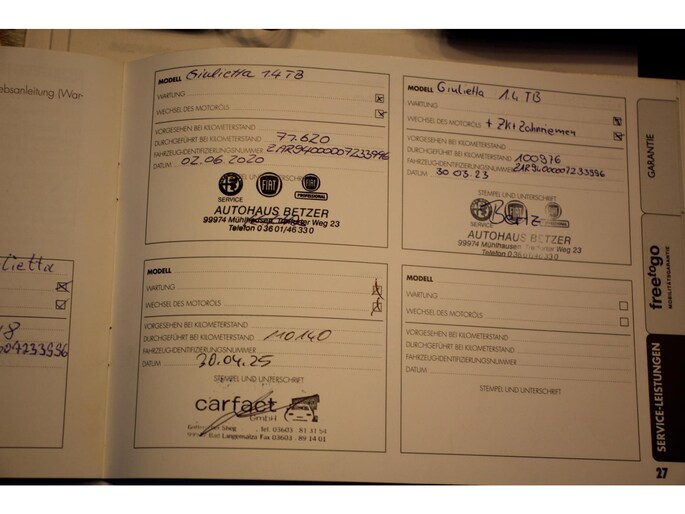 ebsanleitung (War-
MODELL Giulietta 1.4 TB
WARTUNG
WECHSEL DES MOTORÖLS
VORGESEHEN BEI KILOMETERSTAND
DURCHGEFÜHRT BEI KILOMETERSTAND 77.620
FAHRZEUG-IDENTIFIZIERUNGSNUMMER ZAR94000007233996
DATUM 02.06.2020
STEMPEL UND UNTERSCHRIFT
SERVICE
FIAT
PROFESSIONAL
AUTOHAUS BETZER
99974 Mühlhausen Weg 23
Telefon 0 36 01/46 330
MODELL Giulietta 1.4 TB
WARTUNG
WECHSEL DES MOTORÖLS + Zkt Zahnriemen
VORGESEHEN BEI KILOMETERSTAND
DURCHGEFÜHRT BEI KILOMETERSTAND 100976
FAHRZEUG-IDENTIFIZIERUNGSNUMMER ZAR94000007233996
DATUM 30.03.23
STEMPEL UND UNTERSCHRIFT
SERVICE
AUTOHAUS BETZER
99974 Mühlhausen Weg 23
Telefon 0 36 01/46 330
lietta
MODELL
WARTUNG
WECHSEL DES MOTORÖLS
VORGESEHEN BEI KILOMETERSTAND
DURCHGEFÜHRT BEI KILOMETERSTAND 110140
FAHRZEUG-IDENTIFIZIERUNGSNUMMER
DATUM 30.04.25
STEMPEL UND UNTERSCHRIFT
carfact
GmbH
Tel. 03603 . 81 31 54
Bad Langensalza Fax 03603 . 89 14 01
MODELL
WARTUNG
WECHSEL DES MOTORÖLS
VORGESEHEN BEI KILOMETERSTAND
DURCHGEFÜHRT BEI KILOMETERSTAND
FAHRZEUG-IDENTIFIZIERUNGSNUMMER
DATUM
STEMPEL UND UNTERSCHRIFT
GARANTIE
freetogo
MOBILITÄTSGARANTIE
SERVICE-LEISTUNGEN
27